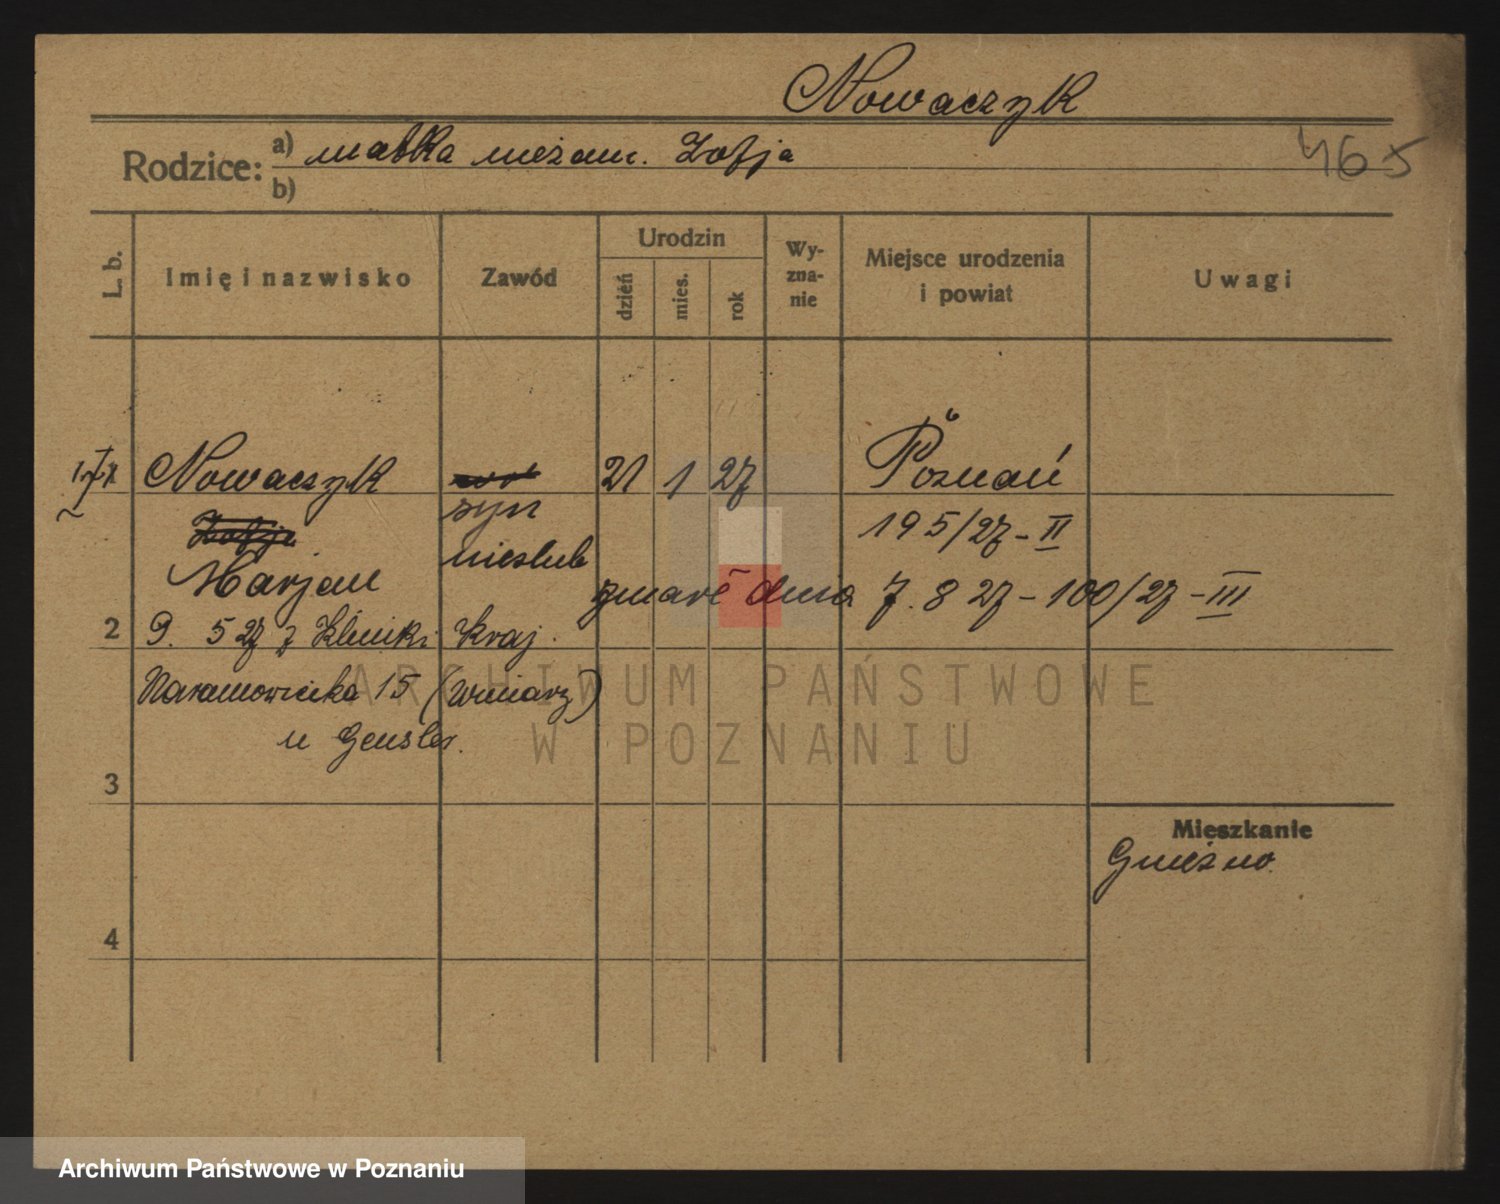 Nowaczyk
Rodzice: a) matka niezam. Zofja
b)
465
L. b.
Imię i nazwisko
Zawód
Urodzin
dzień
mies.
rok
Wy-
zna-
nie
Miejsce urodzenia
i powiat
Uwagi
Nowaczyk
21 1 27
Poznań
Zofja
syn
195/27 - II
nieslub
Marjan
zmarł dnia 7. 8 27 - 100/27 - III
2
9. 5 27 z Kliniki Kraj.
Naramowicka 15 (Winiary)
u Gensler.
3
Mieszkanie
Gniezno.
4
ARCHIWUM PAŃSTWOWE
W POZNANIU
Archiwum Państwowe w Poznaniu